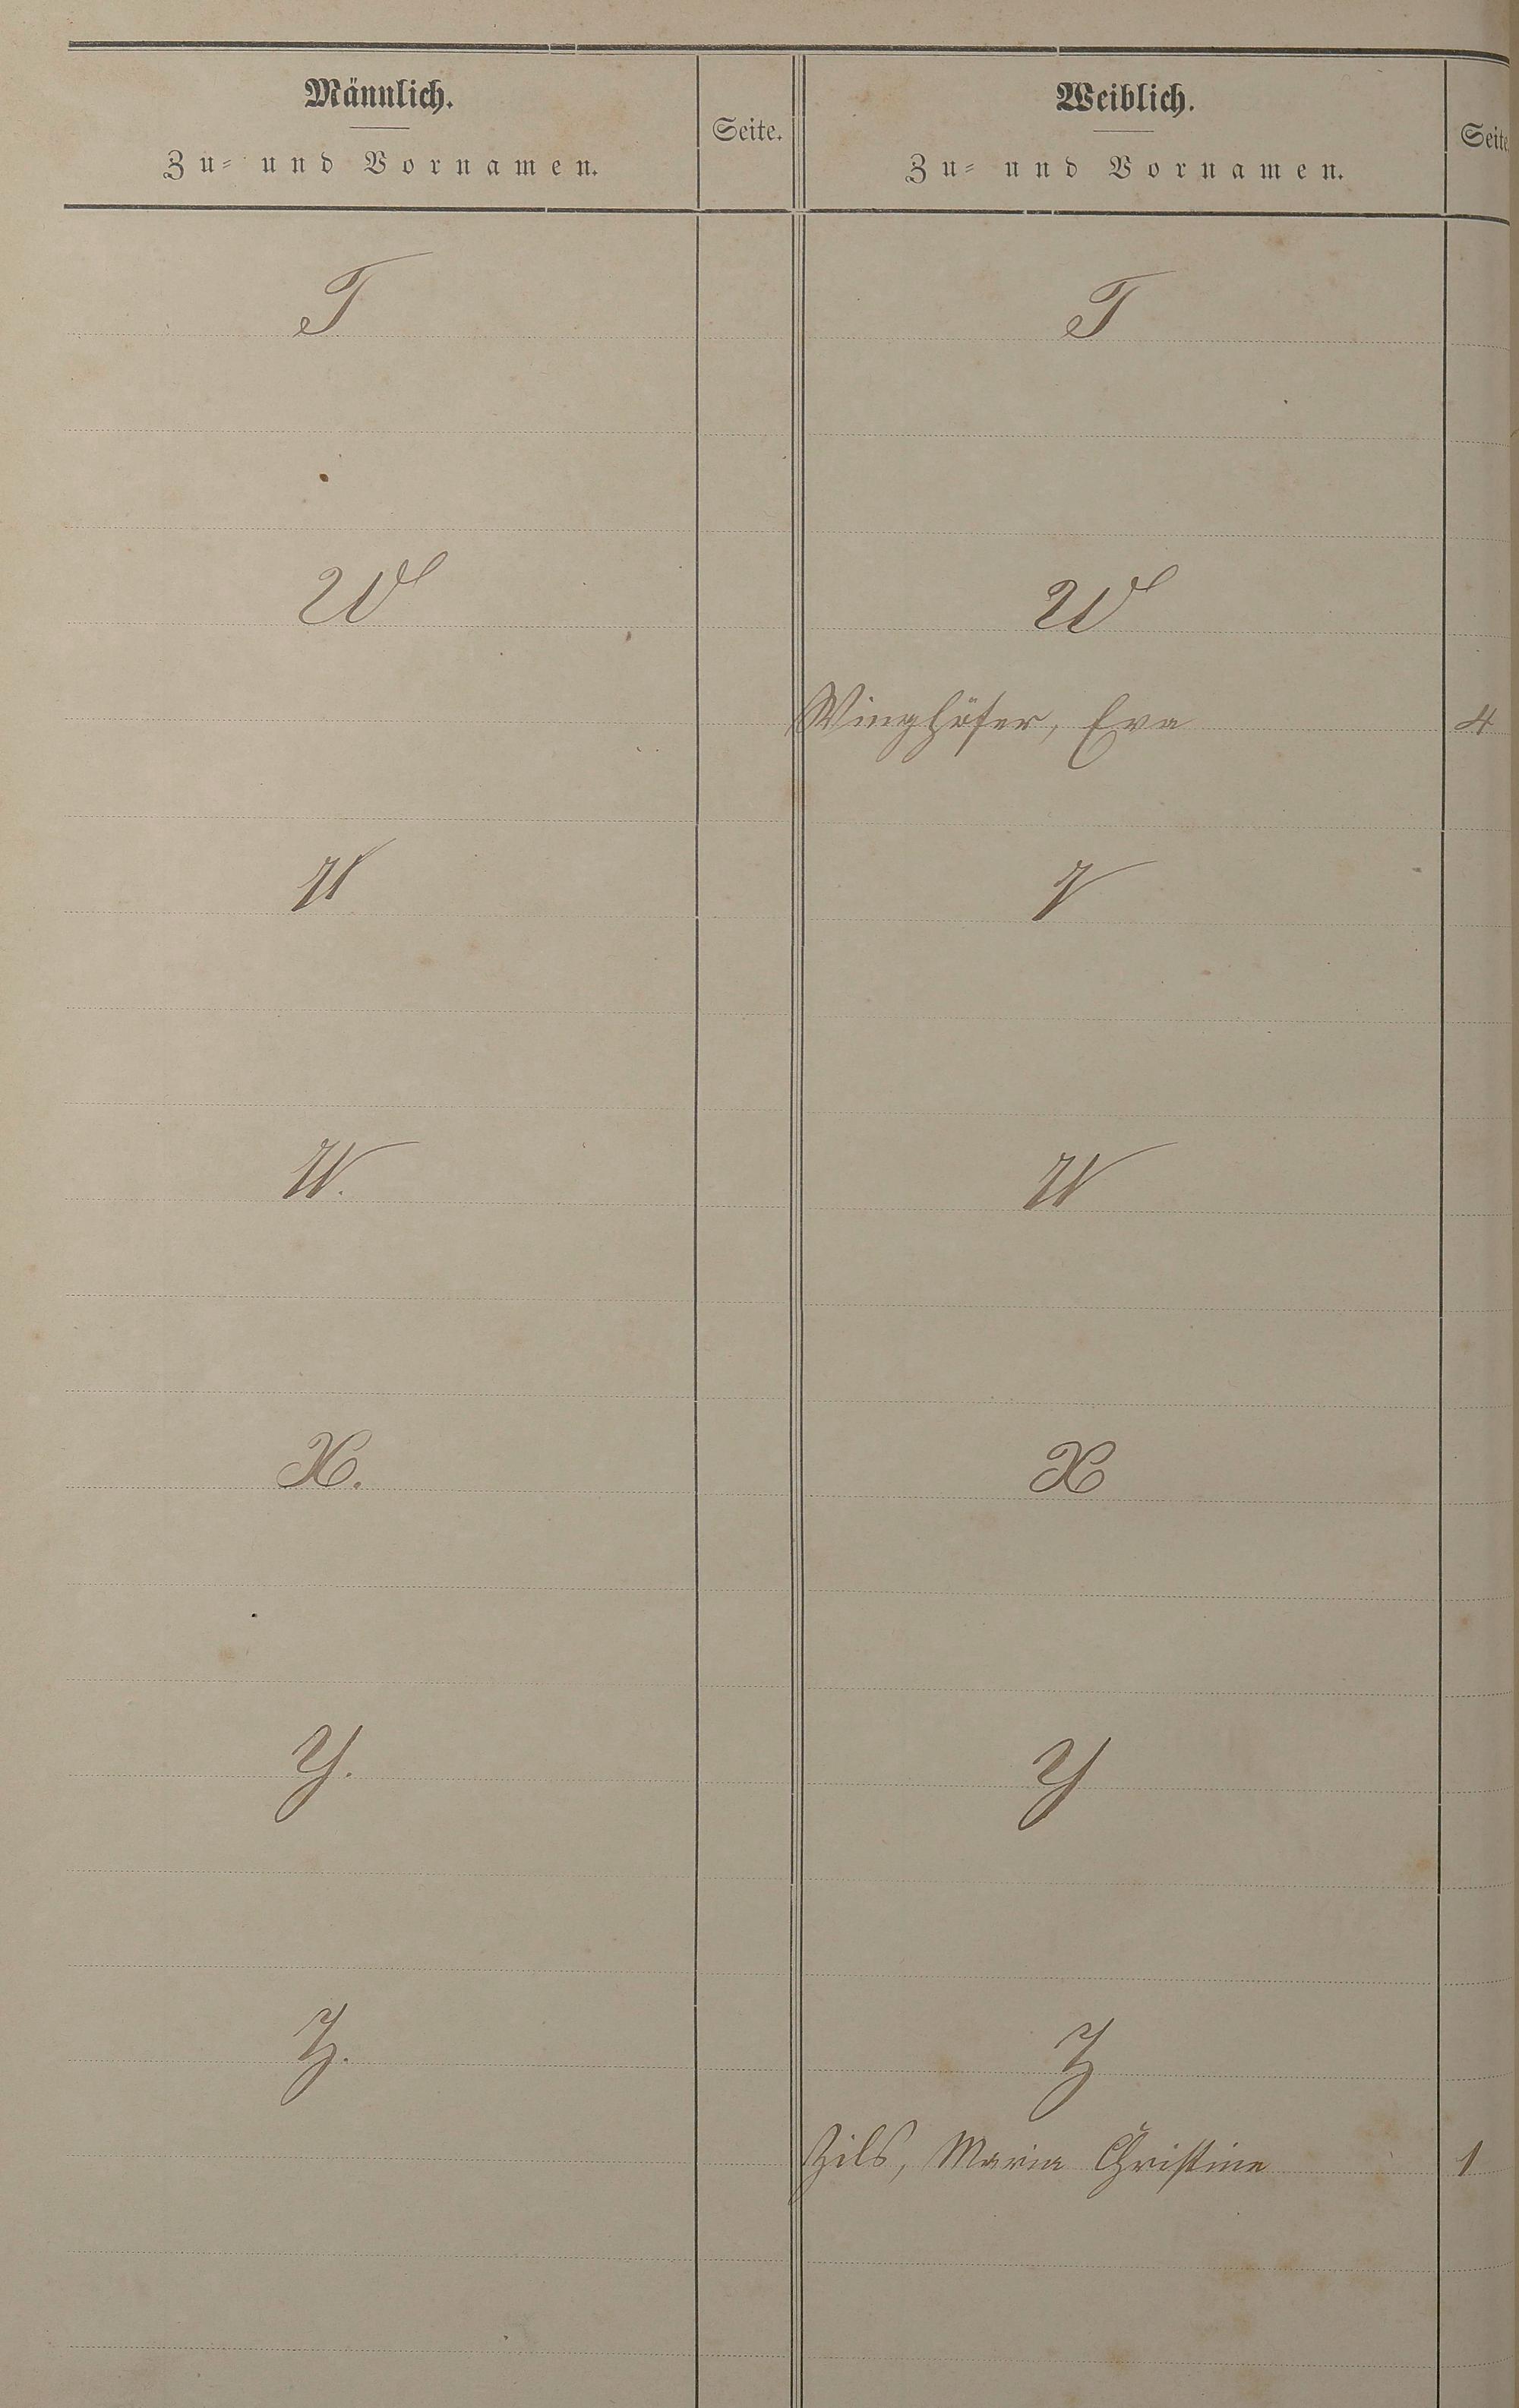 Männlich.
Zu- und Vornamen.
Seite.
Weiblich.
Zu- und Vornamen.
Seite
T
T
W
W
Winghöfer, Eva 4
U
V
W.
W
X.
X
Y.
Y
Z.
Z
Zils, Maria Christine 1